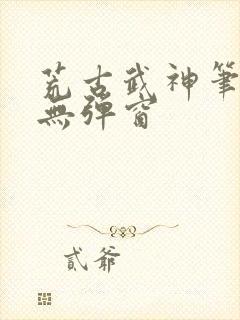 荒古武神筆
無彈窗
貳爺